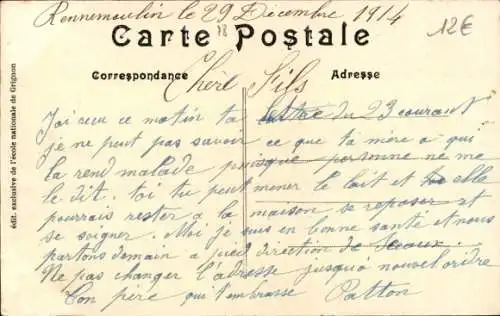 Rennemoulin le 29 Décembre 1914
12€
Carte Postale
Correspondance
Adresse
Cher Fils
J'ai reçu ce matin ta lettre du 23 courant
je ne peut pas savoir ce que ta mère a qui
la rend malade puisque personne ne me
le dit. toi tu peut mener le lait et elle
pourrais rester a la maison se reposer et
se soigner. Moi je suis en bonne santé et nous
partons demain a pied direction de Sceaux.
Ne pas changer l'adresse jusqu'à nouvel ordre
Ton père qui t'embrasse Patton
édit. exclusive de l'école nationale de Grignon